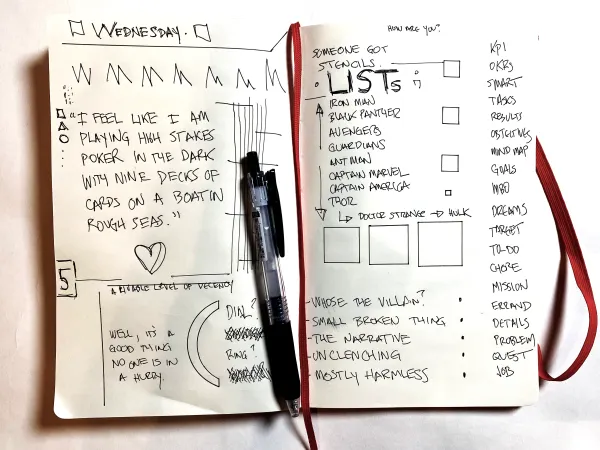 WEDNESDAY.
W M M M M M M
"I FEEL LIKE I AM
PLAYING HIGH STAKES
POKER IN THE DARK
WITH NINE DECKS OF
CARDS ON A BOAT IN
ROUGH SEAS."
5
LEVEL OF DECENCY
WELL, IT'S A
GOOD THING
NO ONE IS IN
A HURRY.
DIAL?
RING?
HOW ARE YOU?
SOMEONE GOT
STENCILS.
LISTS
IRON MAN
BLACK PANTHER
AVENGERS
GUARDIANS
ANT MAN
CAPTAIN MARVEL
CAPTAIN AMERICA
THOR
↳ DOCTOR STRANGE → HULK
- WHOSE THE VILLAN?
- SMALL BROKEN THING
- THE NARRATIVE
- UNCLENCHING
- MOSTLY HARMLESS
KPI
OKRS
SMART
TASKS
RESULTS
OBJECTIVES
MIND MAP
GOALS
MBO
DREAMS
TARGET
TO-DO
CHORE
MISSION
ERRAND
DETAILS
PROBLEM
QUEST
JOB